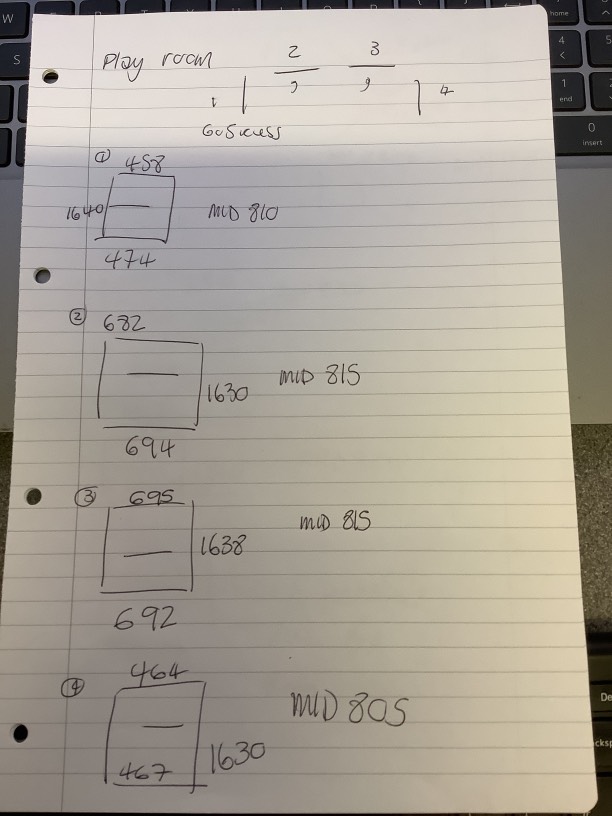 Play room
2 3
1 4
① 458
1640 MID 810
474
② 682
1630 MID 815
694
③ 695
1638 MID 815
692
④ 464
MID 805
467 1630
W
S
home
4
1
end
0
insert